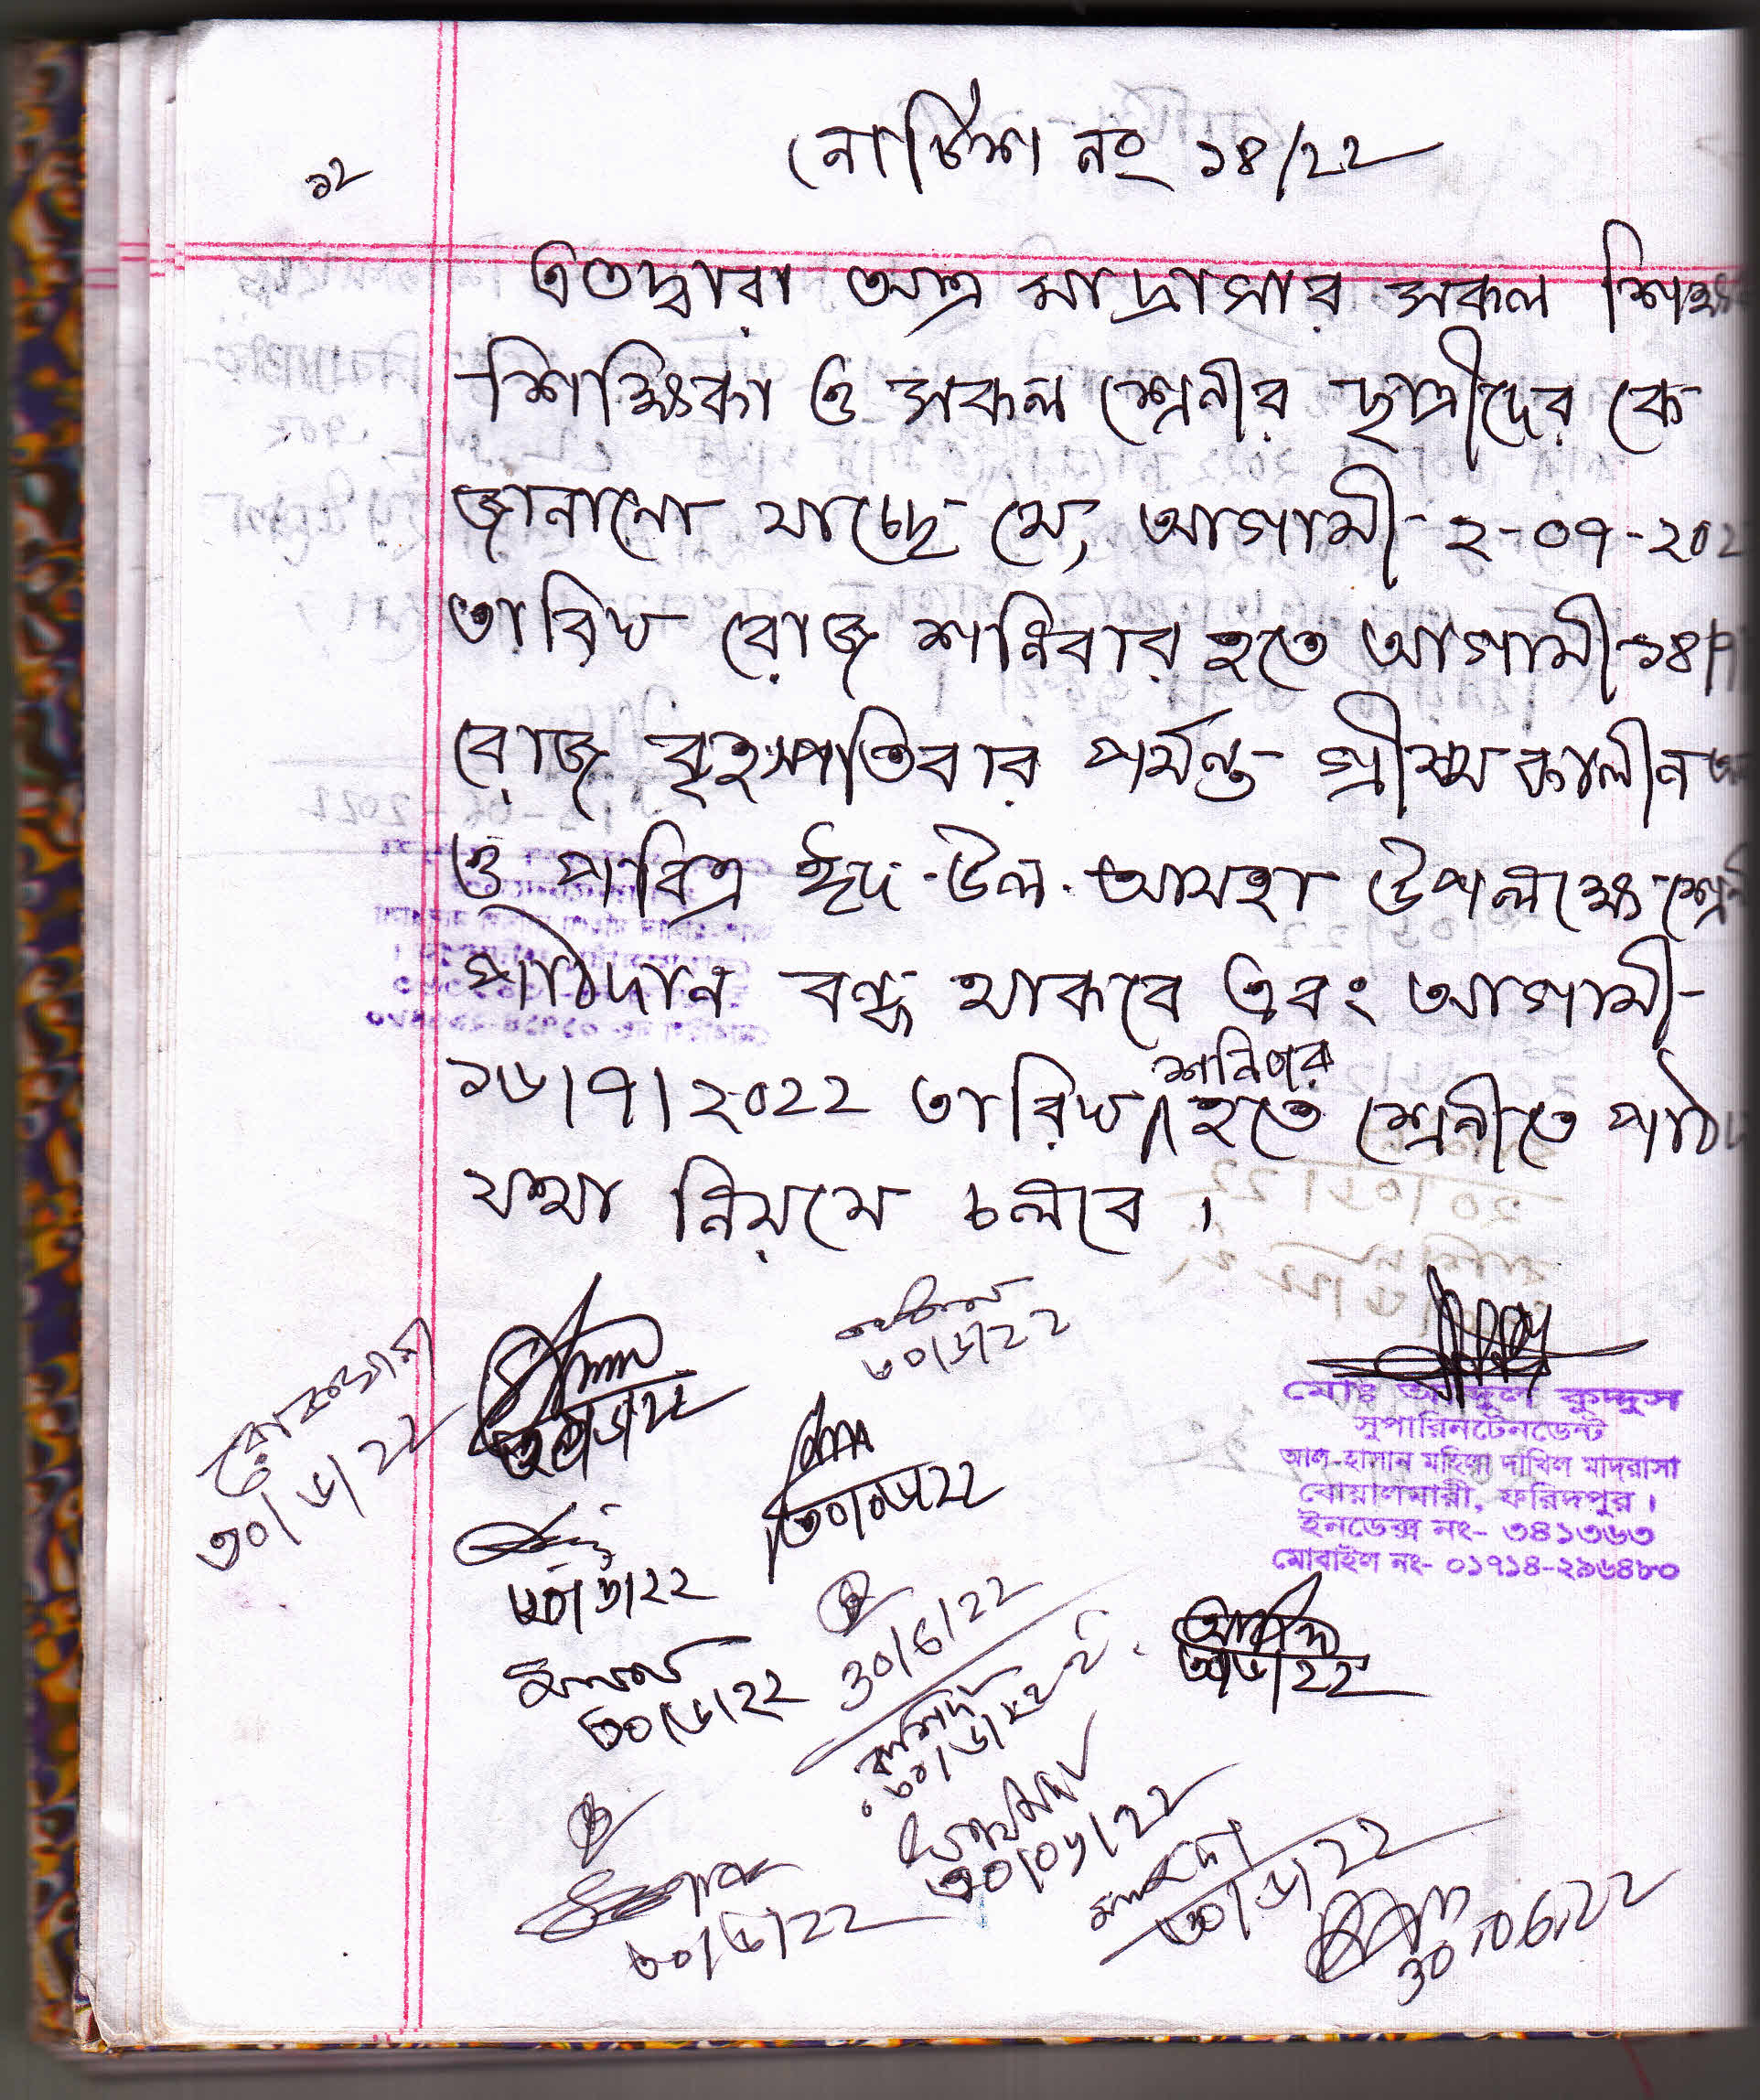 ১২
নোটিশ নং ১৪/২২
এতদ্বারা অত্র মাদ্রাসার সকল
শিক্ষিকা ও সকল শ্রেনীর ছাত্রীদের কে
জানানো যাচ্ছে যে, আগামী ২-০৭-২০২
তারিখ রোজ শনিবার হতে আগামী ১৪/
রোজ বৃহস্পতিবার পর্যন্ত গ্রীষ্মকালীন
ও পবিত্র ঈদ-উল-আযহা উপলক্ষে
পাঠদান বন্ধ থাকবে এবং আগামী
শনিবার
১৬/৭/২০২২ তারিখ হতে শ্রেনীতে
যথা নিয়মে চলবে ।
৩০/৬/২২
৩০/৬/২২
৩০/৬/২২
মোঃ আব্দুল কুদ্দুস
সুপারিনটেনডেন্ট
আল-হাসান মহিলা দাখিল মাদ্রাসা
বোয়ালমারী, ফরিদপুর ।
ইনডেক্স নং- ৩৪১৩৬৩
মোবাইল নং- ০১৭১৪-২৯৬৪৮০
৩০/০৬/২২
৩০/৬/২২
30/6/22
৩০/৬/২২
৩০/৬/২২
রাশিদা
৩০/৬/২২
৩০/০৬/২২
৩০/৬/২২
৩০/৬/২২
30.06.22